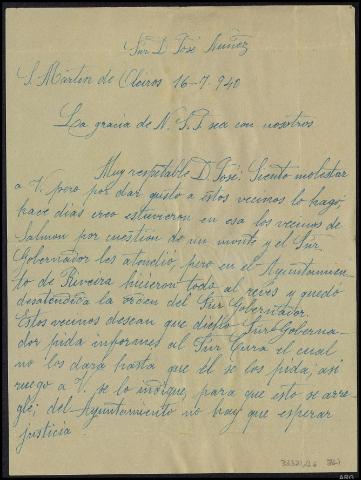 Sür D. José Nuñez
S. Martin de Oleiros 16-7-940
La gracia de N. S. J sea con nosotros
Muy respetable D. José: Siento molestar
a V. pero por dar gusto a éstos vecinos lo hago,
hace dias creo estuvieron en esa los vecinos de
Salmon por cuestión de un monte y el Sür
Gobernador les atendio, pero en el Ayuntamien-
to de Riveira hicieron todo al reves y quedó
desatendida la orden del Sür Gobernador.
Estos vecinos desean que dicho Sür Goberna-
dor pida informes al Sür Cura el cual
no los dará hasta que él se los pida; asi
ruego a V. se lo indique, para que esto se arre-
gle; del Ayuntamiento no hay que esperar
justicia
ARG